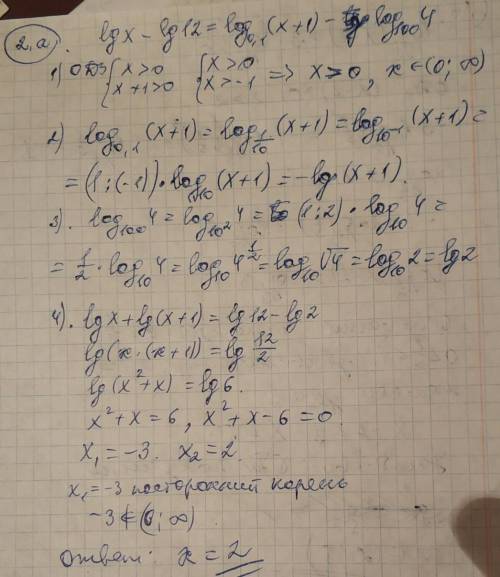 2,а). lg x - lg 12 = log₀,₁(x+1) - log₁₀₀4
1) ОДЗ {x>0 {x>0 => x>0, x∈(0;∞)
{x+1>0 {x>-1
2) log₀,₁(x+1) = log_{1/10}(x+1) = log_{10⁻¹}(x+1) =
= (1:(-1))·log₁₀(x+1) = -lg(x+1).
3). log₁₀₀4 = log_{10²}4 = (1:2)·log₁₀4 =
= 1/2·log₁₀4 = log₁₀4^{1/2} = log₁₀√4 = log₁₀2 = lg2
4). lg x + lg(x+1) = lg12 - lg2
lg(x·(x+1)) = lg 12/2
lg(x²+x) = lg6.
x²+x=6, x²+x-6=0
x₁=-3. x₂=2.
x₁=-3 посторонний корень
-3∉(0;∞)
Ответ: x=2